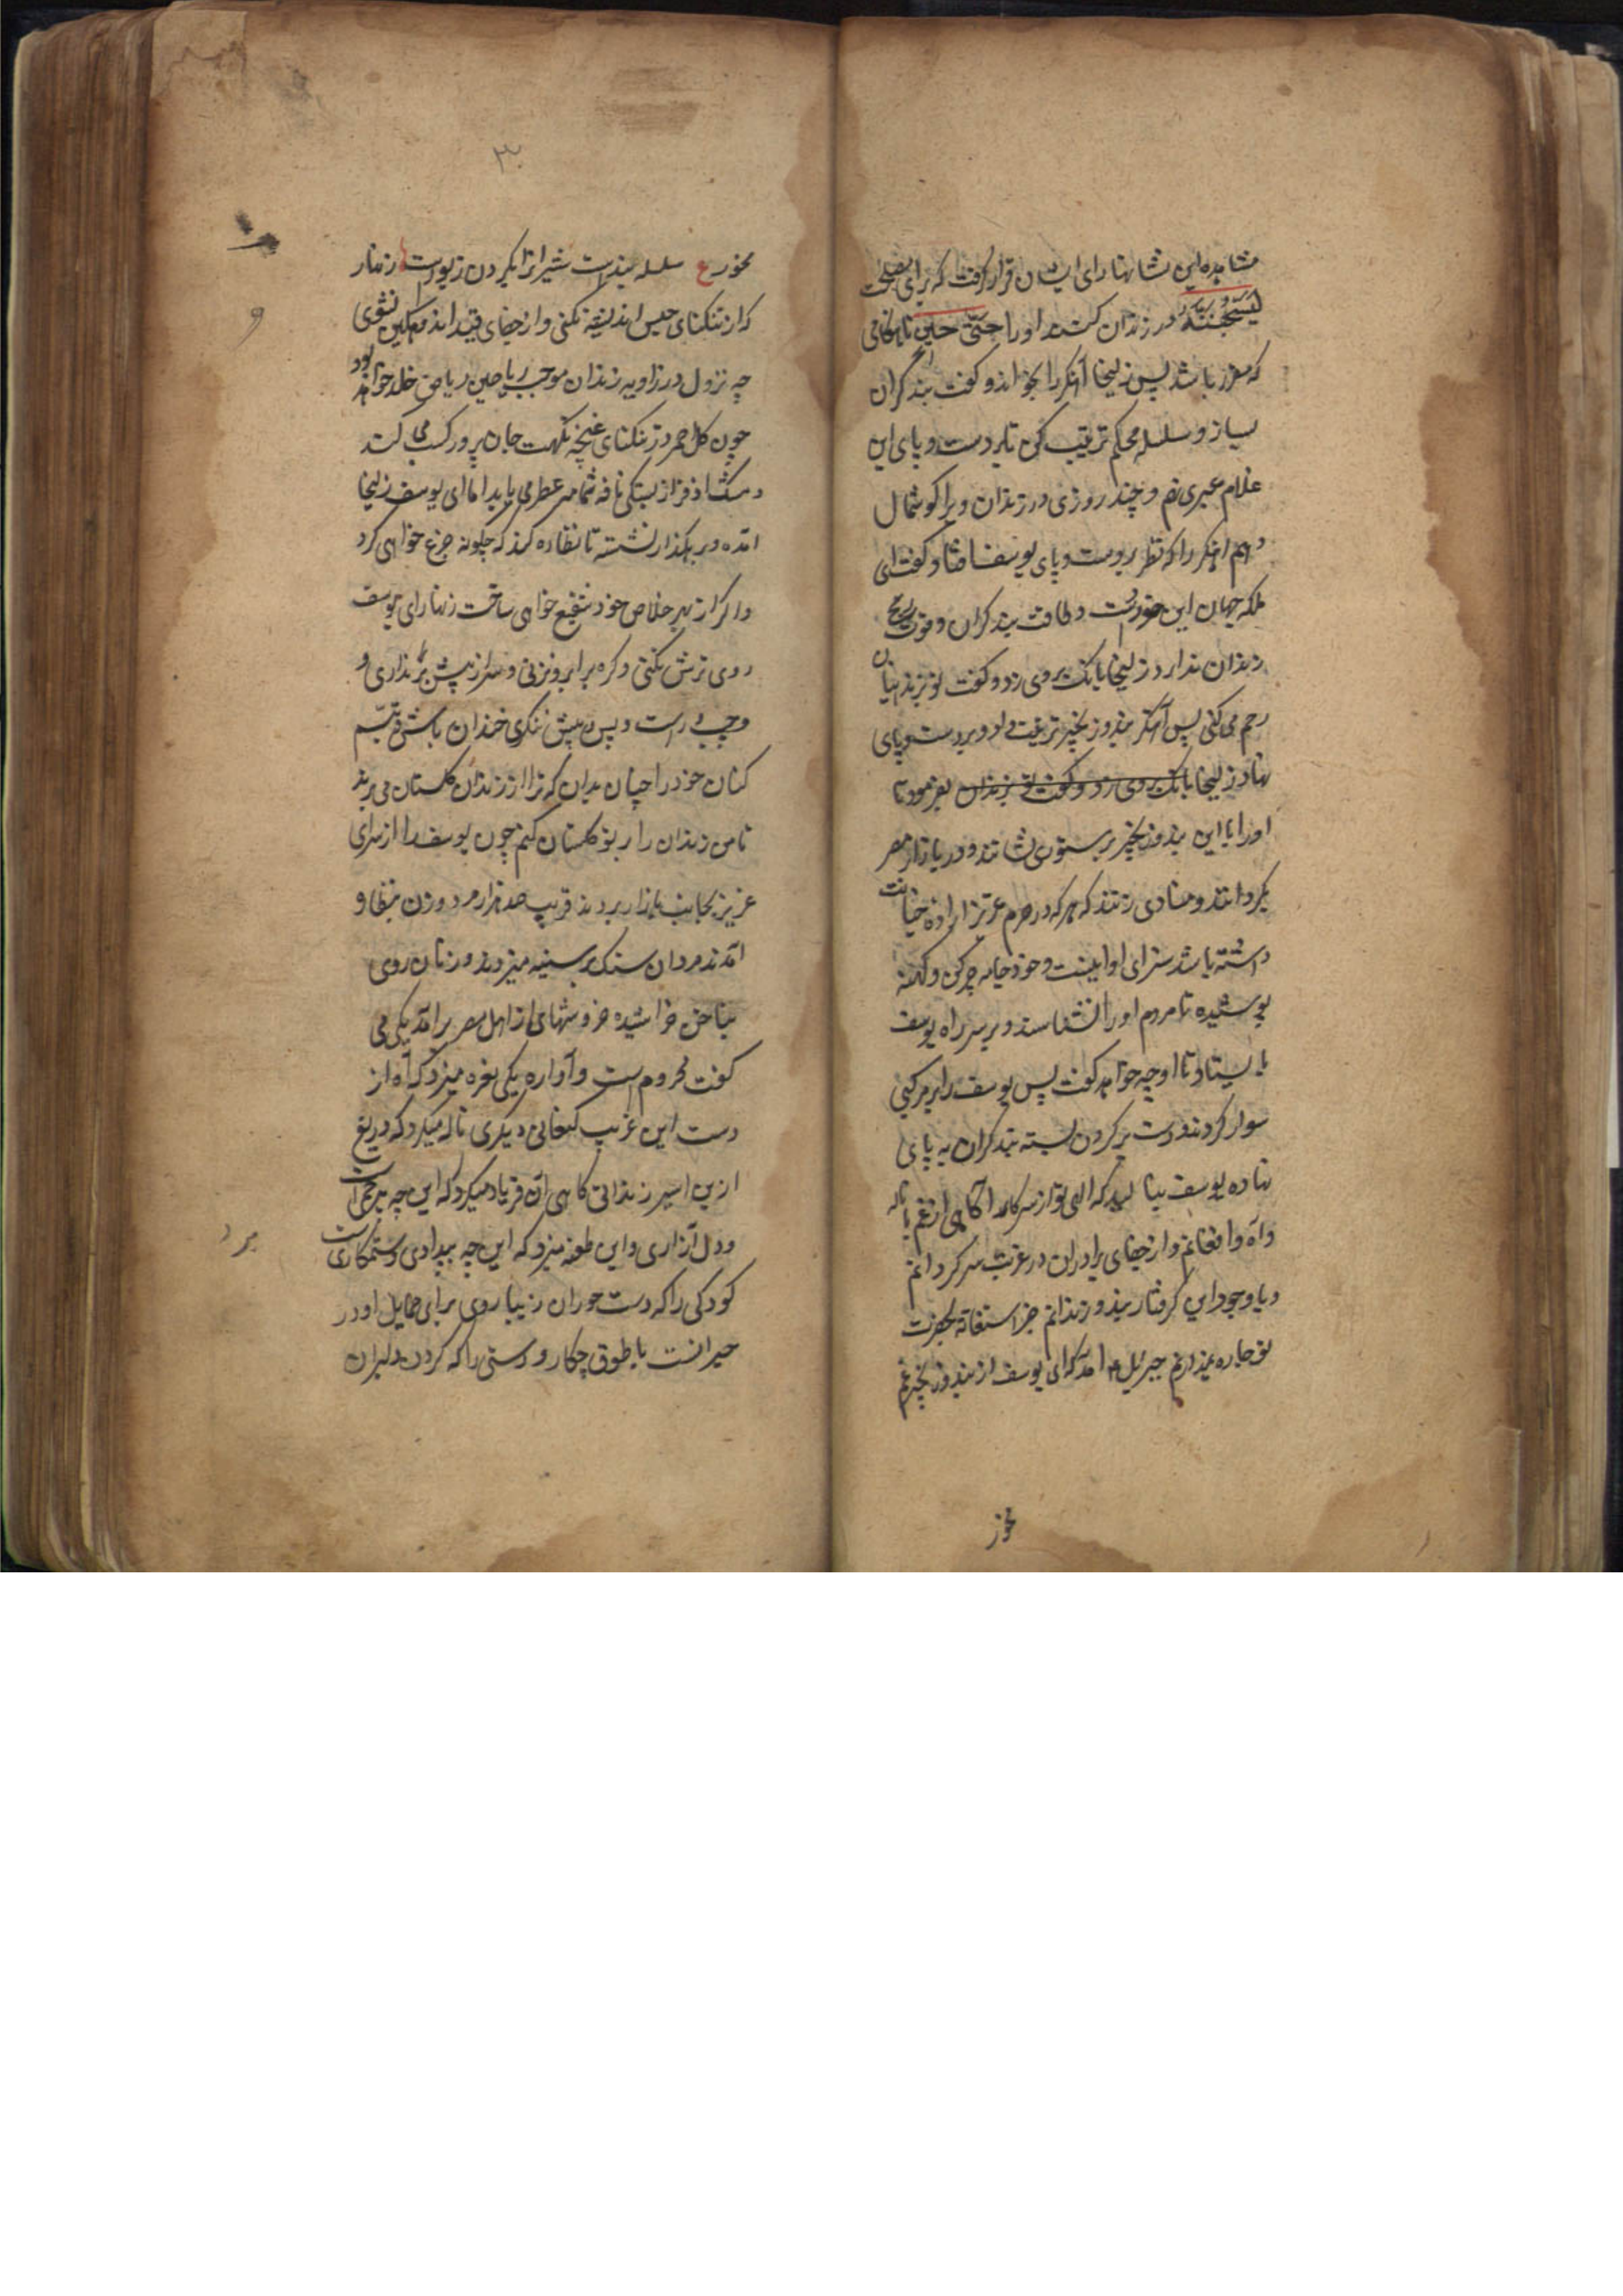 مشاهده این نشانها رای ایشان قرار گرفت که برای مصلحت
لیسجننه در زندان کنند او را حتی حین تا هنگامی
که مقرر باشد پس زلیخا آهنکر را بخواند و کفت بند کران
بساز و سلسله محکم ترتیب کن تا بر دست و پای این
غلام عبری نهم و چند روزی در زندان ویرا کوشمال
دهم اهنکر را که نظر بر دست و پای یوسف افتاد کفت ای
ملکه جهان این خورد است و طاقت بند کران و قوت رنج
زندان ندارد زلیخا بانک بروی زد و کفت تو بزندانیان
رحم می کنی پس آهنکر بند و زنجیر ترتیب داد و بر دست و پای
نهاد زلیخا بانک بروی زد و کفت تو بزندان بفرمود تا
او را با این بند و زنجیر بر ستور نشانند و در بازار مصر
بکردانند و منادی زنند که هر که در حرم عزیز اراده خیانت
داشته باشد سزای او اینست و خود جامه چرکن و کهنه
پوشیده تا مردم او را نشناسند و بر سر راه یوسف
بایستاد تا او چه خواهد کفت پس یوسف را بر مرکبی
سوار کردند و دست بر کردن بسته بند کران به پای
نهاده یوسف بنالید که الهی تو از سر کارم آکاهی از غم با ناله
و آه و افغانم و از جفای برادران در غربت سرکردانم
و با وجود این کرفتار بند و زندانم جز استغاثه بحضرت
تو چاره ندارم جبرئیل ع امد که ای یوسف از بند و زنجیر غم
مخور
۳۰
مخور ع سلسله بند است شیرانرا بکردن زیور است زنهار
که از تنکنای حبس اندیشه نکنی و از جفای قید اندوهکین نشوی
چه نزول در زاویه زندان موجب ریاحین ریاض خلد خواهد بود
چون کل احمر در تنکنای غنچه نکهت جان پرور کسب می کند
و مشک اذفر از بستکی نافه شمامه عطر می یابد اما ای یوسف زلیخا
امده و بر رهکذار نشسته تا نظاره کند که چکونه جزع خواهی کرد
و اکرا از بهر خلاص خود شفیع خواهی ساخت زنهار ای یوسف
روی ترش نکنی و کره بر ابرو نزنی و سر از پیش بر نداری و
و چپ و راست و پس و پیش ننکری خندان باش و تبسم
کنان خود را چنان بدان که ترا از زندان کلستان می برند
تا من زندان را بر تو کلستان کنم چون یوسف را از سرای
عزیز بجانب بازار بردند قریب صد هزار مرد و زن بنظاره
امدند مردان سنک بر سینه میزدند و زنان روی
بناخن خراشیده خروشهای از اهل مصر برامد یکی می
کفت محروم است و آواره یکی نعره میزد که آه از
دست این غریب کنعانی دیکری ناله میکرد که دریغ
ازین اسیر زندانی کاهی آن فریاد میکرد که این چه بیرحمی است
و دل آزاری و این طعنه میزد که این چه بیدادی و ستمکاری است
کودکی را که دست حوران زیبا روی برای حمایل او در
حیرانست با طوق چکار و دستی را که کردن دلبران